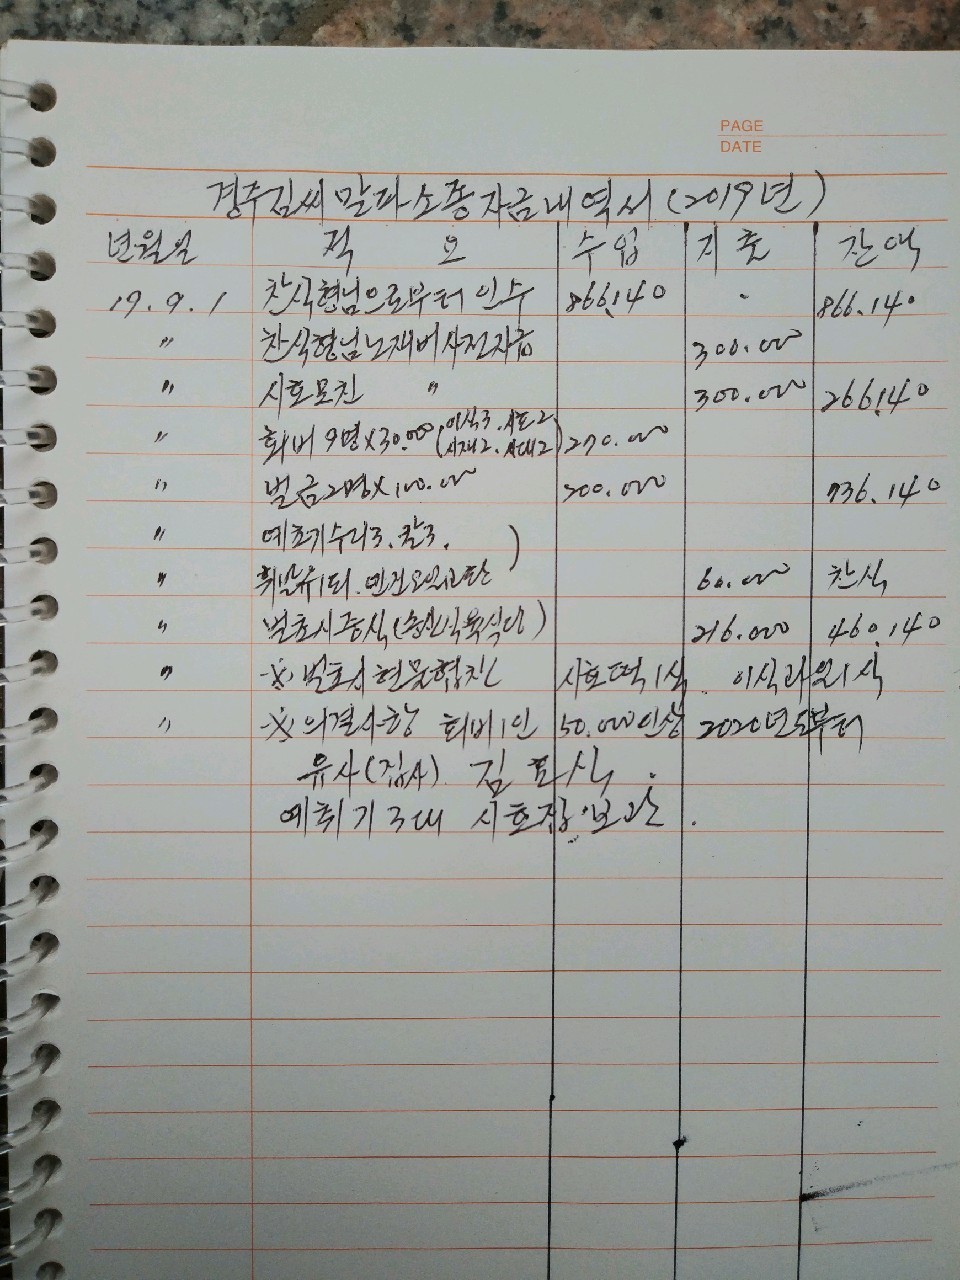 PAGE
DATE
경주김씨 말파소종 자금내역서(2019년)
년월일 적 요 수입 지출 잔액
19.9.1 찬식형님으로부터 인수 866.140 - 866.140
〃 찬식형님노재비사전자금 300.000
〃 시호모친 〃 300.000 266.140
〃 회비 9명×30.000(이식3.시호2 시재2.시대2) 270.000
〃 벌금2명×100.000 200.000 736.140
〃 예초기수리3.칼3.
〃 휘발유1되. 60.000 찬식
〃 벌초시중식(숯불식육식당) 216.000 460.140
〃 ※벌초시 현물협찬( 시호떡1식 이식과일1식
〃 ※의결사항 회비1인 50.000인상 2020년도부터
유사(집사) 김효식.
예취기3대 시호집 보관.